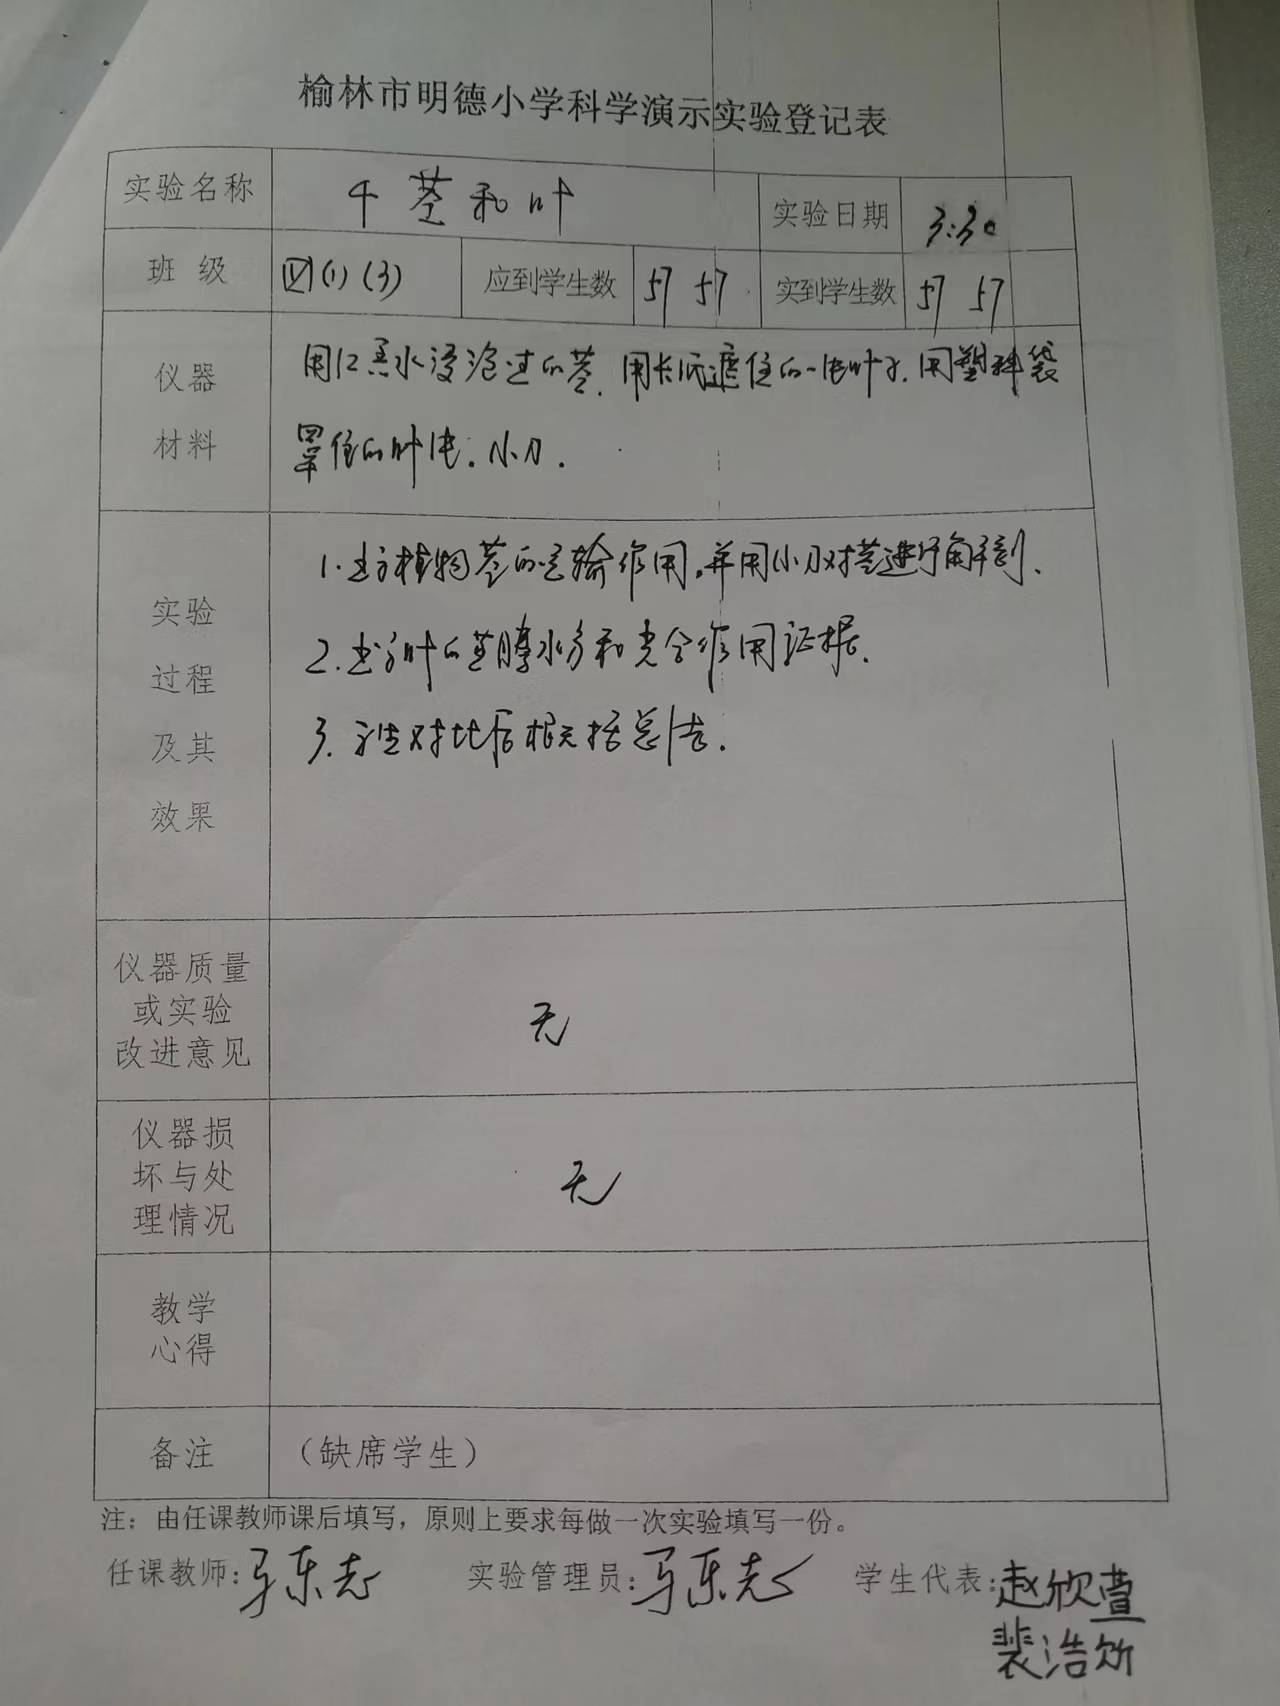 榆林市明德小学科学演示实验登记表
实验名称 茎和叶 实验日期 3:30
班级 四(1)(3) 应到学生数 57 57 实到学生数 57 57
仪器材料 用红墨水浸泡过的茎.用长纸遮住的一片叶子.用塑料袋
罩住的叶片.小刀.
实验过程及其效果
1.植物茎的运输作用.并用小刀对茎进行解剖.
2.叶的蒸腾水分和光合作用证据.
3.对比后概括总结.
仪器质量或实验改进意见 无
仪器损坏与处理情况 无
教学心得
备注 （缺席学生）
注：由任课教师课后填写，原则上要求每做一次实验填写一份。
任课教师：马东志 实验管理员：马东志 学生代表：赵欣萱
裴浩